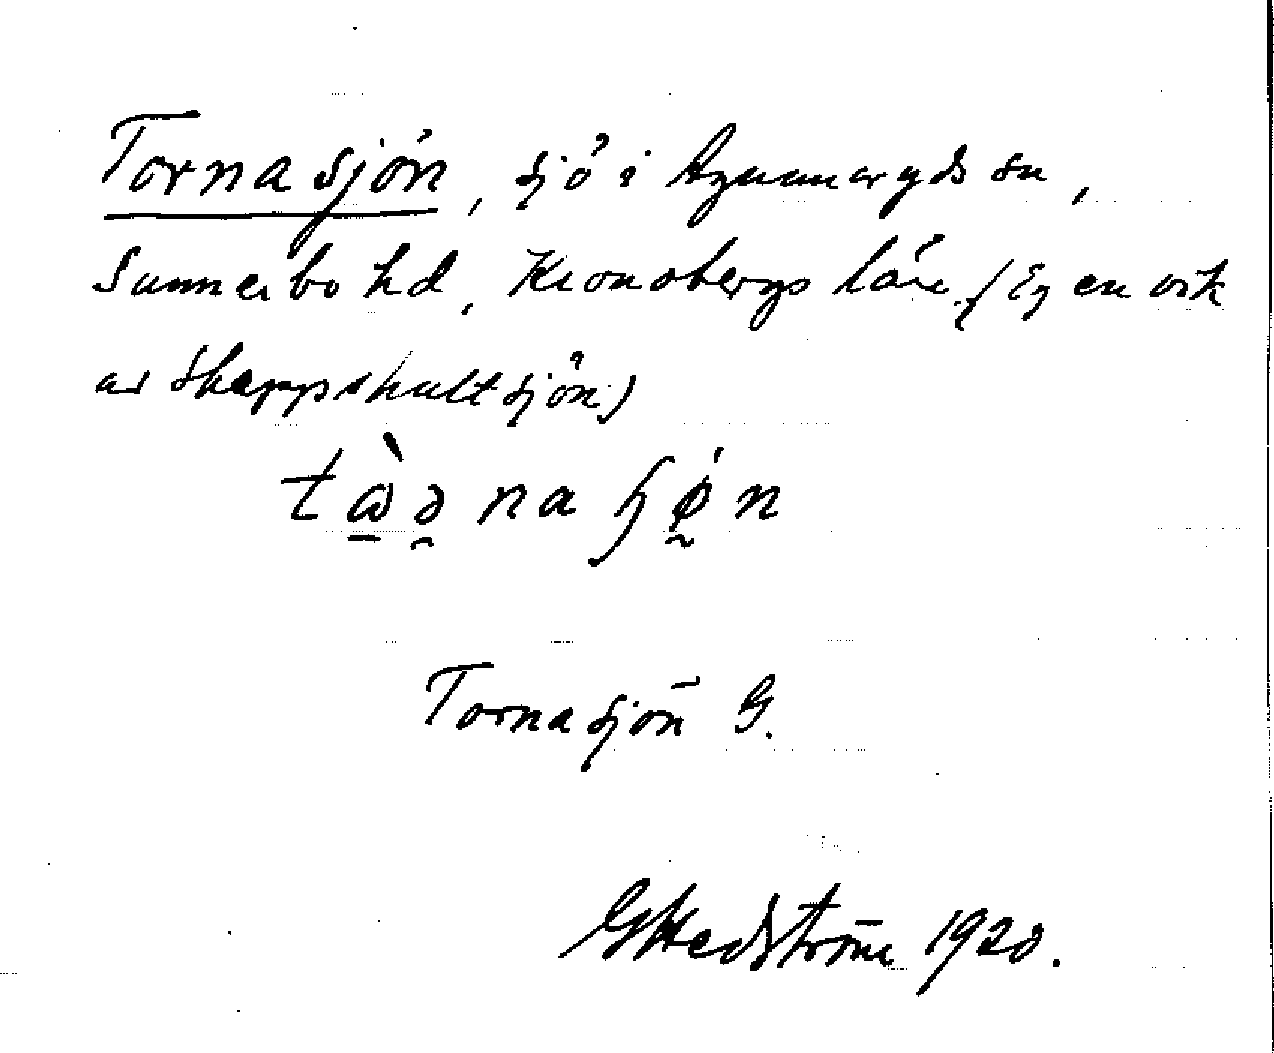 Tornasjön, sjö i Agunnaryds sn,
Sunnerbo hd, Kronobergs län. (Eg en vik
av Skeppshultsjön)
tὼ̱ə̯ na ɧǿ̰n
Tornasjön G.
GHedström 1920.